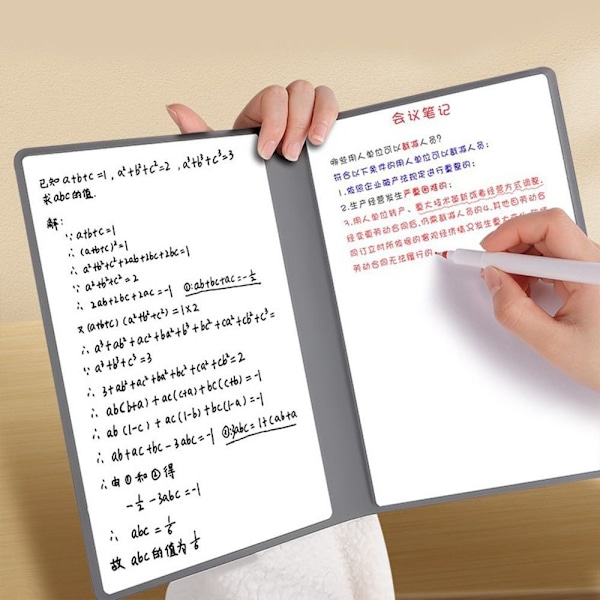 已知 a+b+c=1, a²+b²+c²=2, a³+b³+c³=3
求abc的值.
解:
∵ a+b+c=1
∴ (a+b+c)²=1
∴ a²+b²+c²+2ab+2bc+2bc=1
∵ a²+b²+c²=2
∴ 2ab+2bc+2ac=-1 ①:ab+bc+ac=-½
×(a+b+c)(a²+b²+c²)=1×2
∴ a³+ab²+ac²+ba²+b³+bc²+ca²+cb²+c³=
∵ a³+b³+c³=3
∴ 3+ab²+ac²+ba²+bc²+ca²+cb²=2
∴ ab(b+a)+ac(c+a)+bc(c+b)=-1
∴ ab(1-c)+ac(1-b)+bc(1-a)=-1
∴ ab+ac+bc-3abc=-1 ②:3abc=1+(ab+a
∴ 由①和②得
-½-3abc=-1
∴ abc=1/6
故 abc的值为1/6
会议笔记
哪些用人单位可以裁减人员?
符合以下条件的用人单位可以裁减人员:
1.依照企业破产法规定进行重整的;
2.生产经营发生严重困难的;
3.用人单位转产、重大技术革新或者经营方式调整,
经变更劳动合同后,仍需裁减人员的4.其他因劳动合
同订立时所依据的客观经济情况发生重大
劳动合同无法履行的